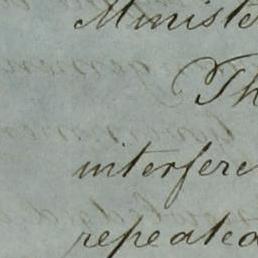 Ministe
Th
interfere
repeated